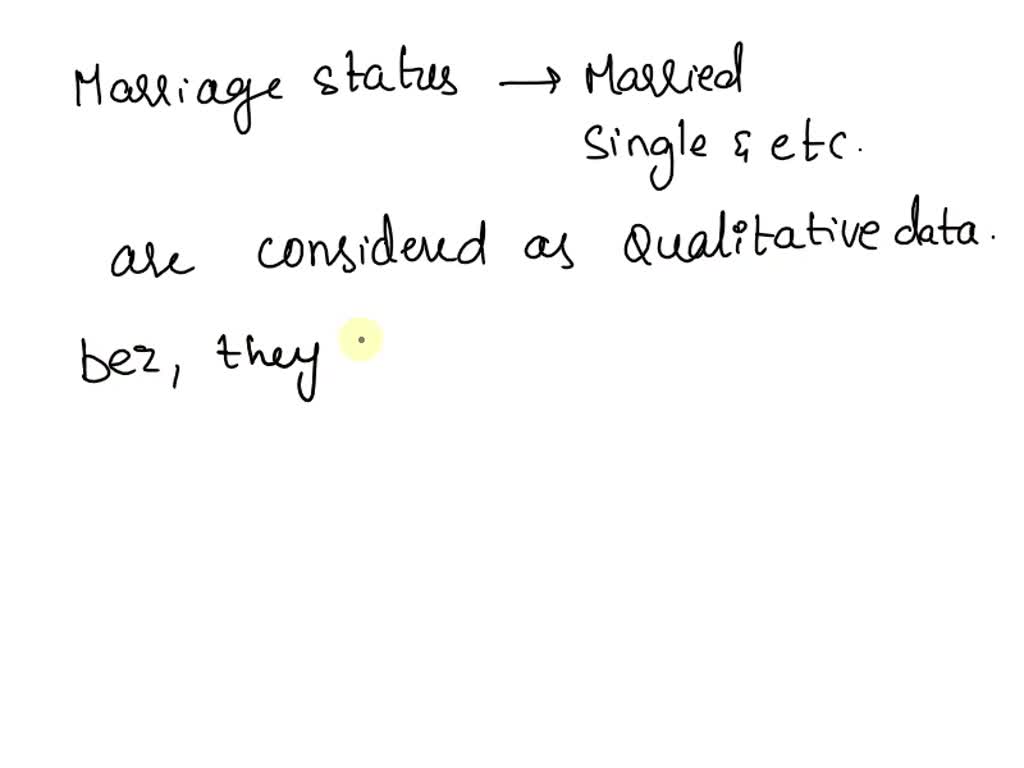 Marriage status → Married
Single & etc.
are considered as Qualitative data.
bcz, they